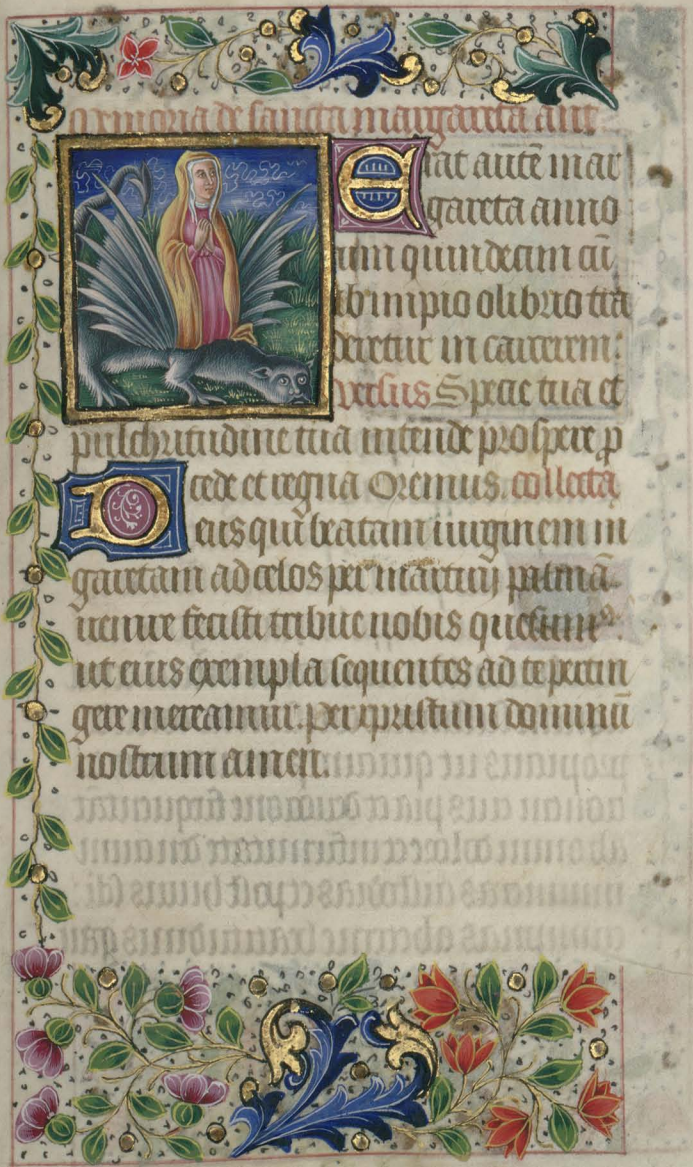 memoria de sancta margareta ant
Erat autē mar
gareta anno
rum quindecim cū
ab impio olibrio tra
deretur in carcerem:
versus Specie tua et
pulchritudine tua intende prospere p̄
cede et regna Oremus. collecta
Deus qui beatam uirginem m
garetam ad celos per martirij palmā
uenire fecisti tribue nobis quesumus.
ut eius exempla sequentes ad te pertin
gere mereamur. per xpristum dominū
nostrum amen.